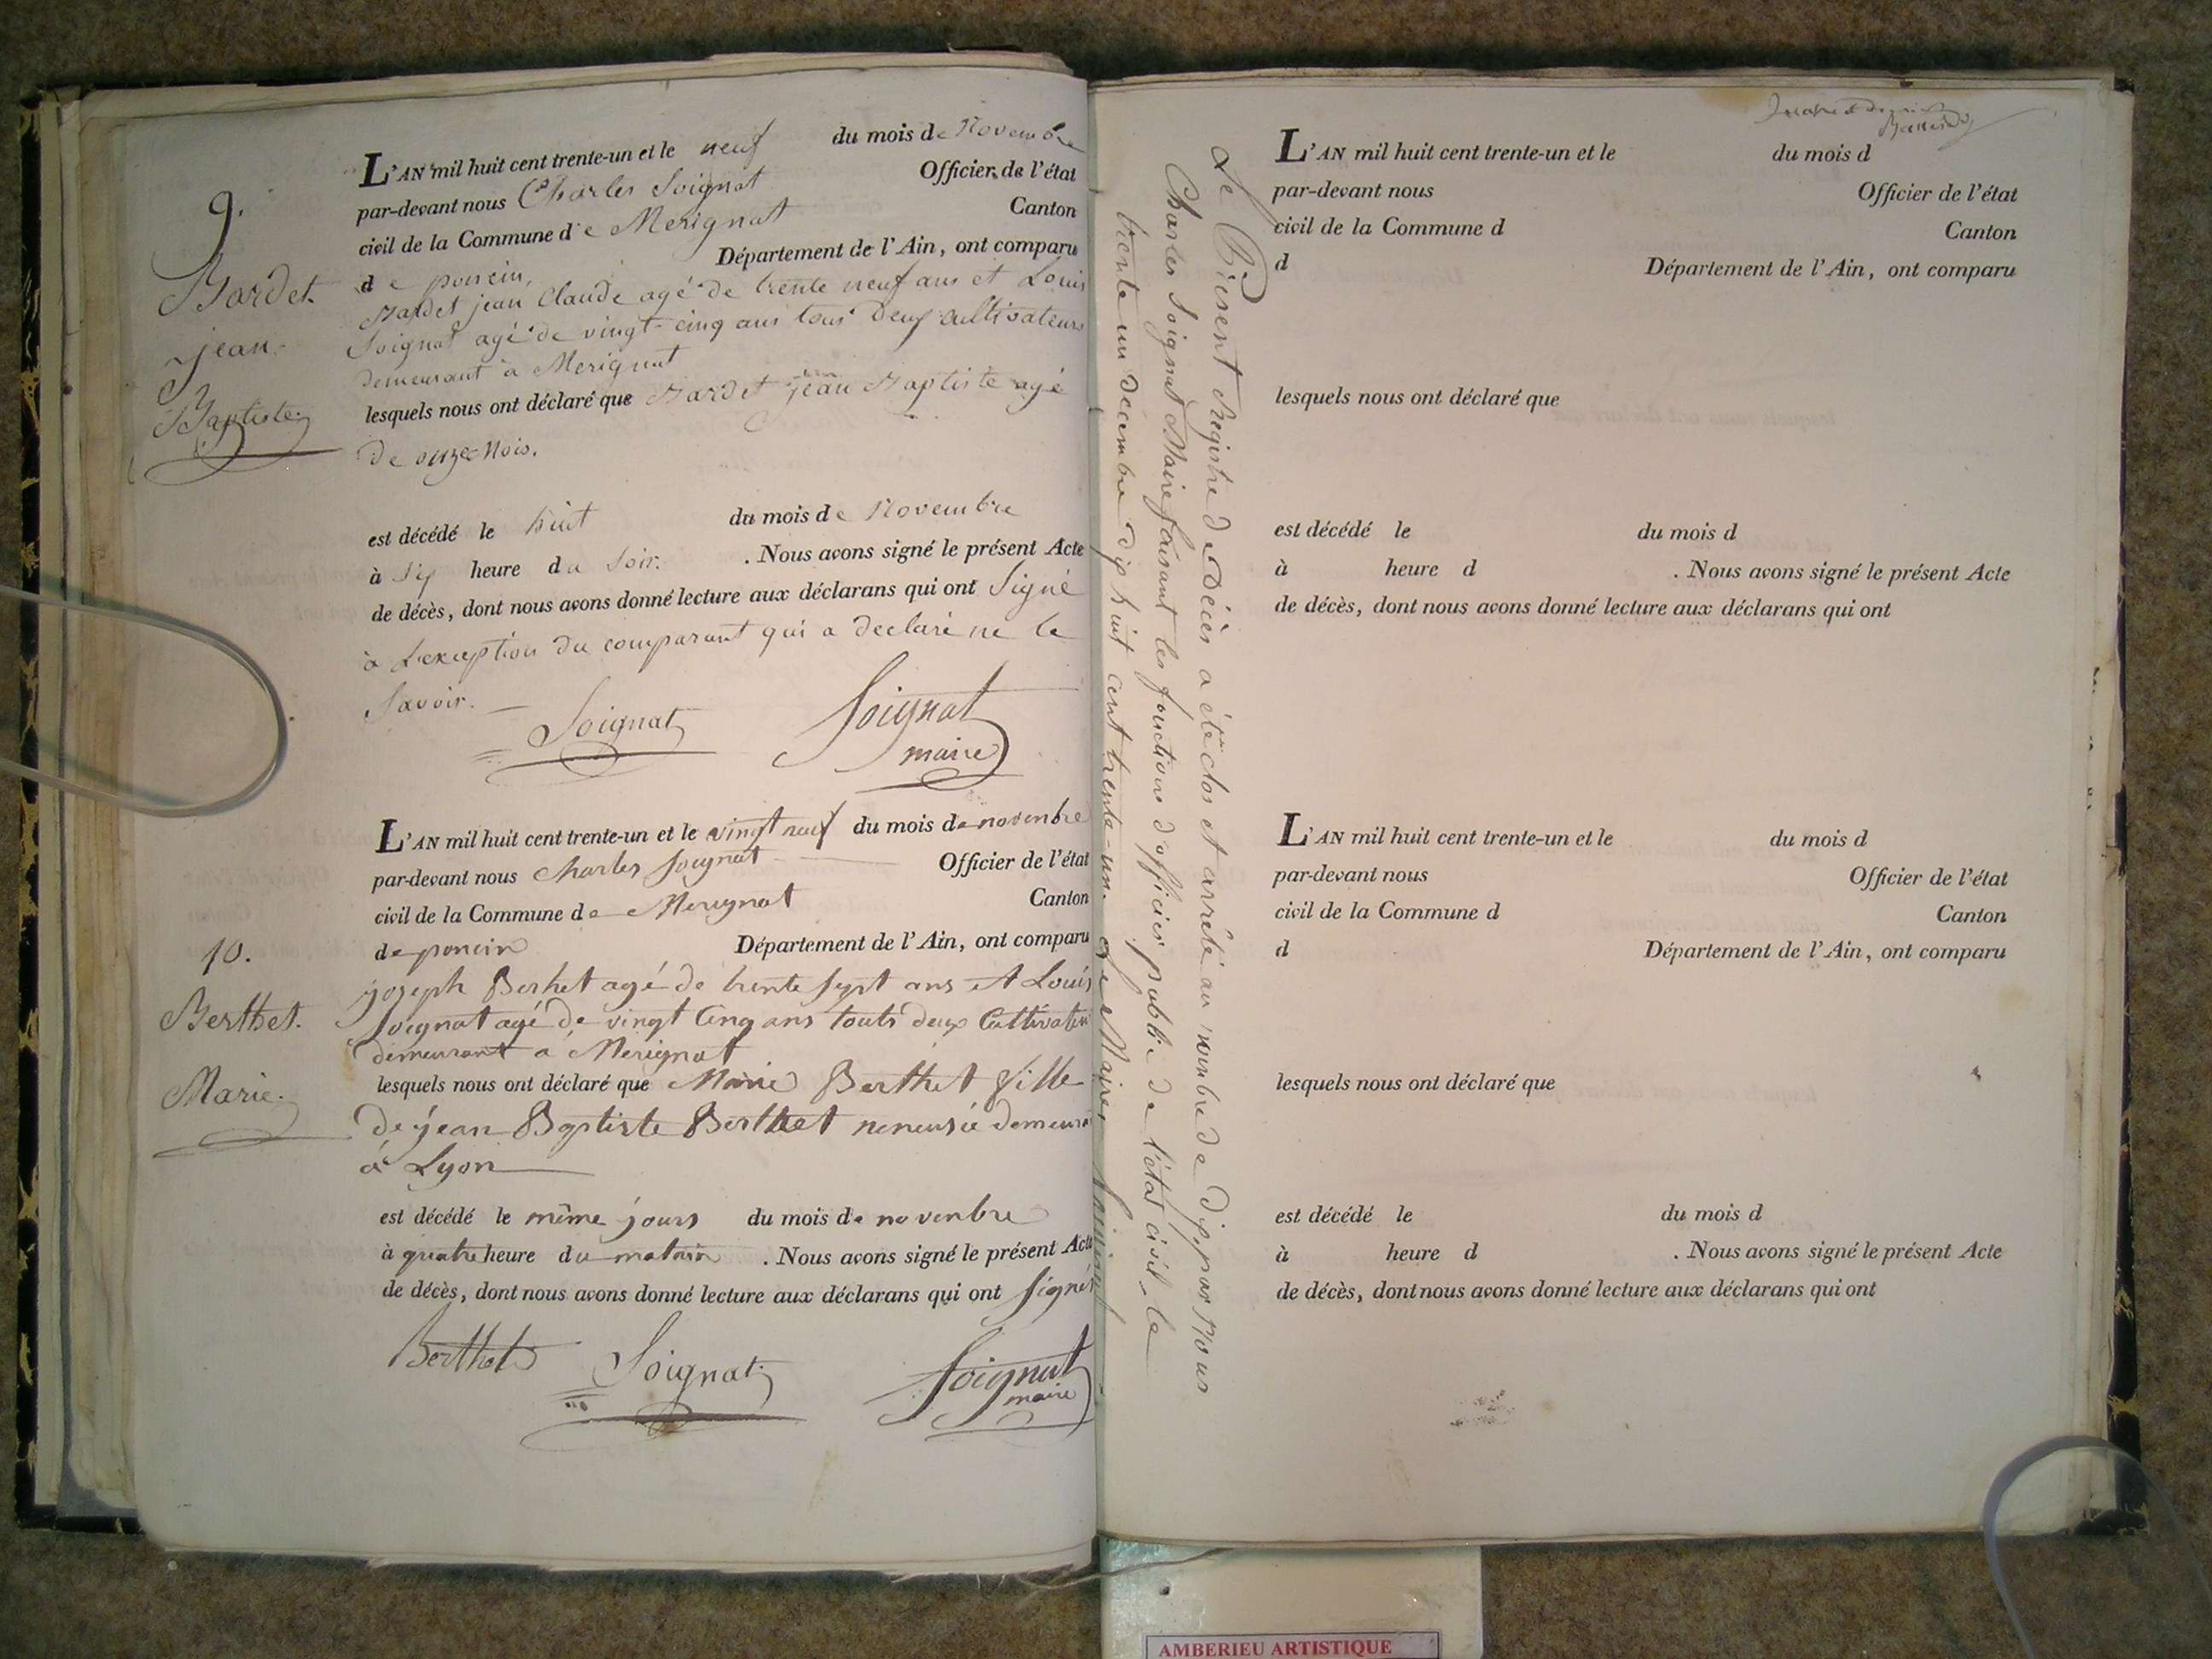 9.
Bardet
jean
Baptiste
L'AN mil huit cent trente-un et le neuf du mois de Novembre
par-devant nous Charles Soignat Officier de l'état
civil de la Commune de Merignat Canton
de poncin, Département de l'Ain, ont comparu
Bardet jean Claude agé de trente neuf ans et Louis
Soignat agé de vingt-cinq ans tous deux cultivateurs
demeurant à Merignat
lesquels nous ont déclaré que Bardet jean Baptiste agé
de onze Mois.
est décédé le huit du mois de Novembre
à six heure du Soir. . Nous avons signé le présent Acte
de décès, dont nous avons donné lecture aux déclarans qui ont Signé
à L'exception du comparant qui a declaré ne le
Savoir. —
Soignat Soignat
maire
10.
Berthet.
Marie.
L'AN mil huit cent trente-un et le vingt neuf du mois de novenbre
par-devant nous Charles Soignat Officier de l'état
civil de la Commune de Merignat Canton
de poncin Département de l'Ain, ont comparu
joseph Berhet agé de trente sept ans et Louis
Soignat agé de vingt Cinq ans touts deux Cultivateur
demeurant a Merignat
lesquels nous ont déclaré que Marie Berthet fille
de jean Baptiste Berthet demeurant
a Lyon
est décédé le même jours du mois de novenbre
à quatre heure du matain . Nous avons signé le présent Acte
de décès, dont nous avons donné lecture aux déclarans qui ont signés
Berthet Soignat Soignat
maire
Le Présent Registre de Décès a été clos et arrêté au nombre de dix, par Nous
Charles Soignat Maire faisant les fonctions d'officier public de l'état civil le
trente un decembre dix huit cent trente-un. Le Maire, Soignat
L'AN mil huit cent trente-un et le du mois d
par-devant nous Officier de l'état
civil de la Commune d Canton
d Département de l'Ain, ont comparu
lesquels nous ont déclaré que
est décédé le du mois d
à heure d . Nous avons signé le présent Acte
de décès, dont nous avons donné lecture aux déclarans qui ont
L'AN mil huit cent trente-un et le du mois d
par-devant nous Officier de l'état
civil de la Commune d Canton
d Département de l'Ain, ont comparu
lesquels nous ont déclaré que
est décédé le du mois d
à heure d . Nous avons signé le présent Acte
de décès, dont nous avons donné lecture aux déclarans qui ont
AMBERIEU ARTISTIQUE